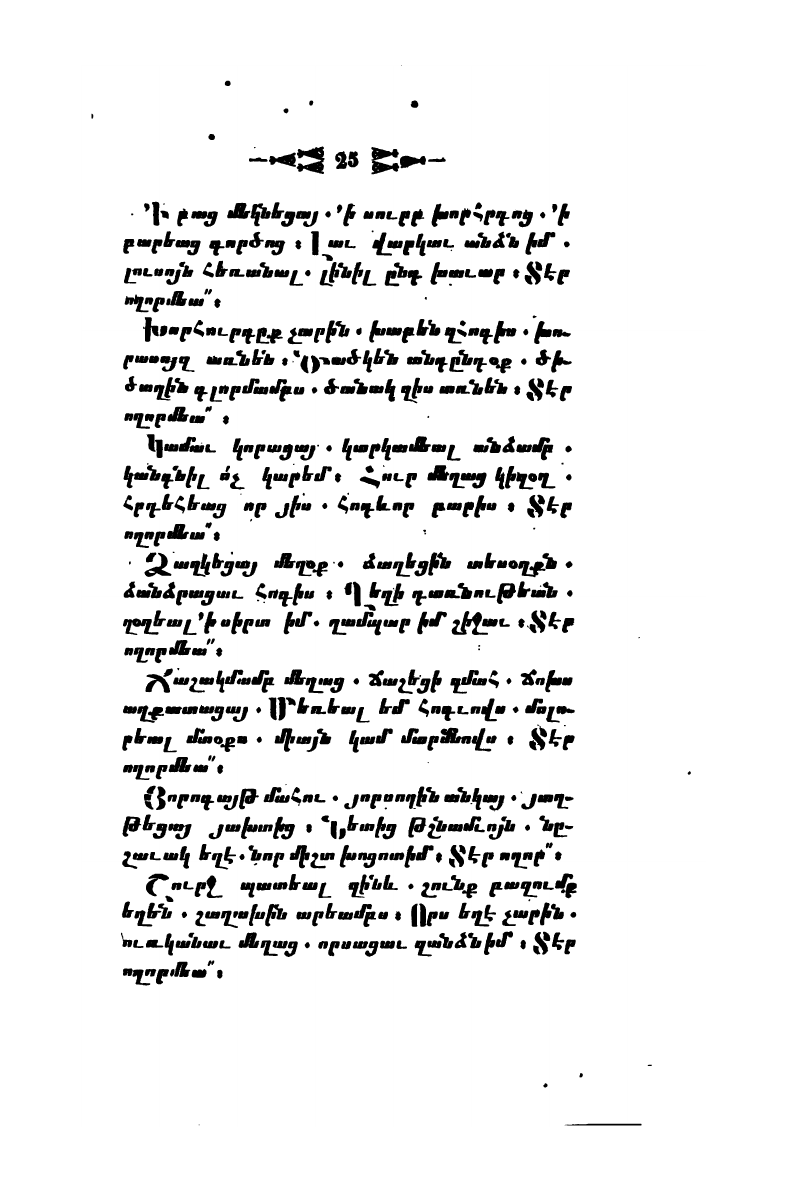 25
Ի բաց մեկնեցայ․ ՛ի սուրբ խորհրդոց․ ՛ի
բարեաց գործոց։ Լաւ վարկաւ անձն իմ․
լուսոյն հեռանալ․ լինիլ ընդ խաւար։ Տէր
ողորմեա՛՛։
Խորհուրդըք չարին․ խաբեն զհոգիս․ խո֊
րասոյզ առնեն։ Ծածկեն անդընդօք․ ծի֊
ծաղին գլորմամբս․ ծանակ զիս առնեն։ Տէր
ողորմեա՛՛։
Կամաւ կորացայ․ կարկամեալ անձամբ․
կանգնիլ ո՛չ կարեմ։ Հուր մեղաց կիզօղ․
հրդեհեաց որ յիս․ հոգևոր բարիս։ Տէր
ողորմեա՛՛։
Ձաղկեցայ մեղօք․ ձաղեցին տեսօղքն․
ձանձրացաւ հոգիս։ Ղեղի դառնութեան․
ղօղեալ ՛ի սիրտ իմ․ ղամպար իմ շիջաւ։ Տէր
ողորմեա՛՛։
Ճաշակմամբ մեղաց․ ճաշեցի զմահ․ ճոխս
աղքատացայ․ Մեռեալ եմ հոգւովս․ մոլո֊
րեալ մտօքս․ միայն կամ մարմնովս։ Տէր
ողորմեա՛՛։
Յորոգայթ մահու․ յորսողին անկայ․ յաղ֊
թեցայ յախտից։ Նետից թշնամւոյն․ նը֊
շաւակ եղէ․ նոր միշտ խոցոտիմ։ Տէր ողոր՛՛։
Շուրջ պատեալ զինև․ շունք բազումք
եղեն․ շաղախին արեամբս։ Որս եղէ չարին․
ուռկանաւ մեղաց․ որսացաւ զանձն իմ։ Տէր
ողորմեա՛՛։